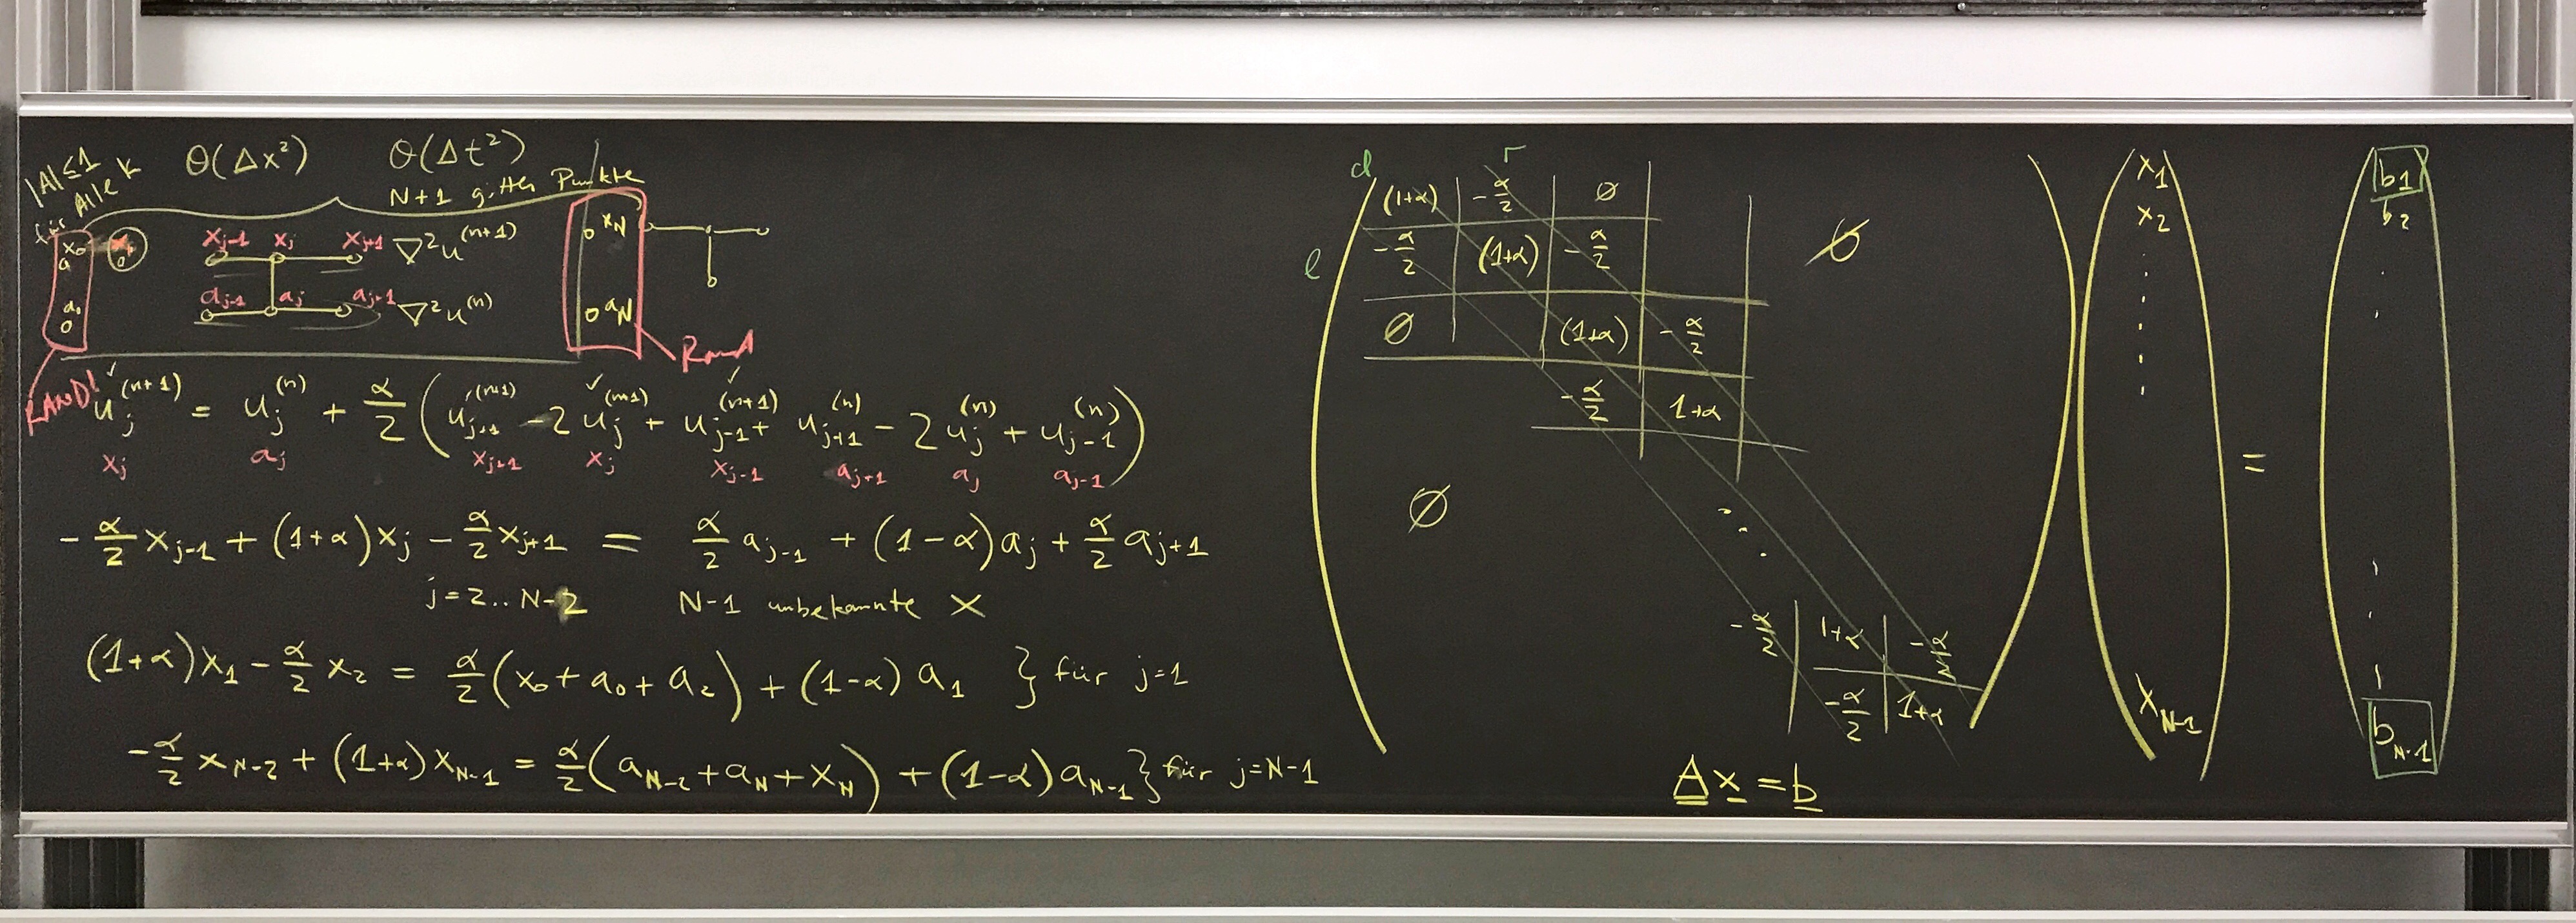 |A| ≤ 1
für Alle k
O(Δx²) O(Δt²)
N+1 gitter Punkte
x₀
a₀
0
x_{j-1} x_j x_{j+1} ∇²u^{(n+1)}
a_{j-1} a_j a_{j+1} ∇²u^{(n)}
x_N
a_N
Rand
RAND!
u_j^{(n+1)} = u_j^{(n)} + α/2 ( u_{j+1}^{(n+1)} - 2 u_j^{(n+1)} + u_{j-1}^{(n+1)} + u_{j+1}^{(n)} - 2 u_j^{(n)} + u_{j-1}^{(n)} )
x_j a_j x_{j+1} x_j x_{j-1} a_{j+1} a_j a_{j-1}
- α/2 x_{j-1} + (1+α) x_j - α/2 x_{j+1} = α/2 a_{j-1} + (1-α) a_j + α/2 a_{j+1}
j = 2.. N-2 N-1 unbekannte X
(1+α) x₁ - α/2 x₂ = α/2 (x₀ + a₀ + a₂) + (1-α) a₁ } für j=1
- α/2 x_{N-2} + (1+α) x_{N-1} = α/2 (a_{N-2} + a_N + x_N) + (1-α) a_{N-1} } für j=N-1
d r
l
(1+α) -α/2 ∅
-α/2 (1+α) -α/2 ∅
∅ (1+α) -α/2
-α/2 1+α
∅
-α/2 1+α -α/2
-α/2 1+α
x₁
x₂
x_{N-1}
=
b₁
b₂
b_{N-1}
A x = b